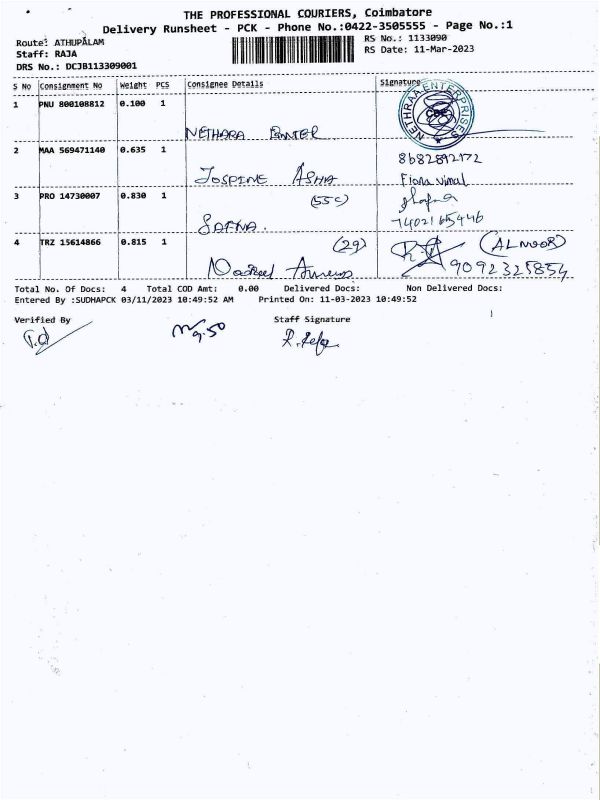 THE PROFESSIONAL COURIERS, Coimbatore
Delivery Runsheet - PCK - Phone No.:0422-3505555 - Page No.:1
Route: ATHUPALAM
RS No.: 1133090
Staff: RAJA
RS Date: 11-Mar-2023
DRS No.: DCJB113309001
S No Consignment No Weight PCS Consignee Details Signature
1 PNU 800108812 0.100 1
NETHRAA ENTERPRISES
CBE
NETHARA
2 MAA 569471140 0.635 1
8682892172
JOSPINE ASHA
Fiona vimal
3 PRO 14730007 0.830 1
(55C)
SAFNA.
7402165446
4 TRZ 15614866 0.815 1
(29)
(ALNOOR)
9092325854
Total No. Of Docs: 4 Total COD Amt: 0.00 Delivered Docs: Non Delivered Docs:
Entered By :SUDHAPCK 03/11/2023 10:49:52 AM Printed On: 11-03-2023 10:49:52
Verified By Staff Signature
9.50